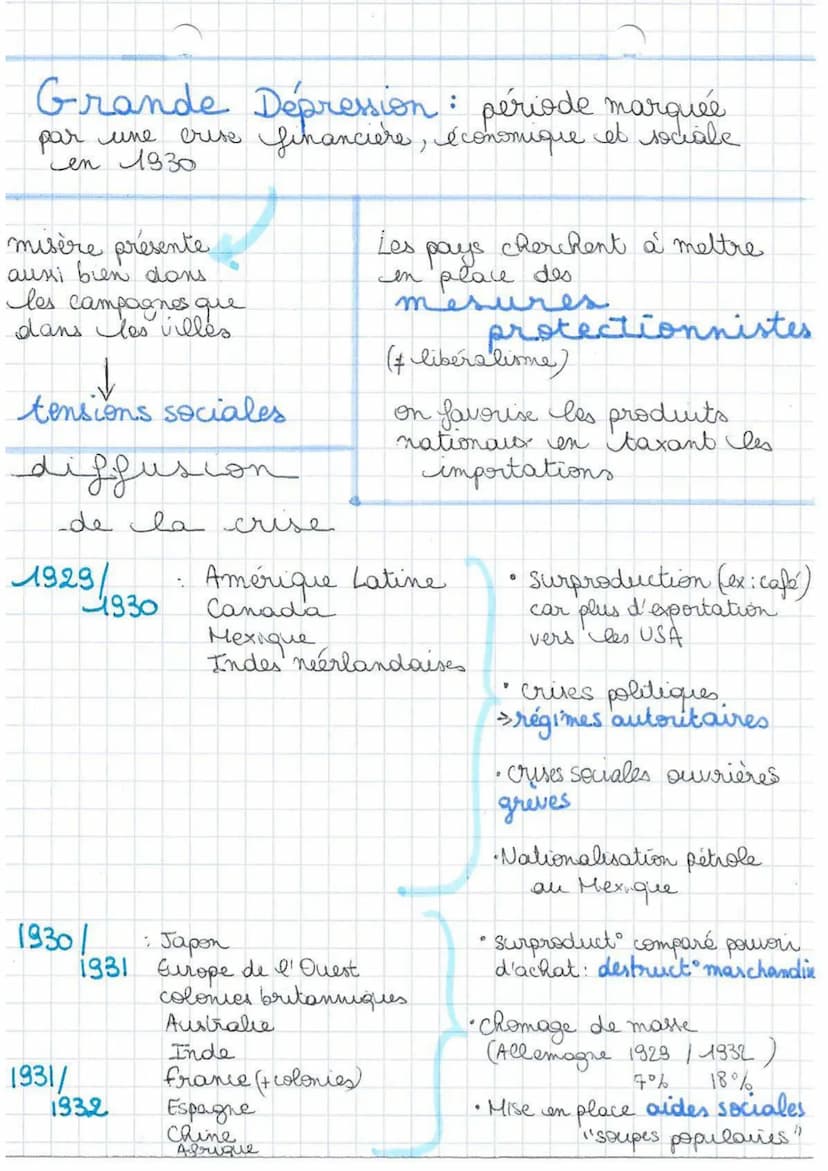 Grande Dépression : période marquée
par une crise financière, économique et sociale
en 1930
misère présente
aussi bien dans
les campagnes que
dans les villes
↓
tensions sociales
Les pays cherchent à mettre
en place des
mesures
protectionnistes
(≠ libéralisme)
on favorise les produits
nationaux en taxant les
importations
diffusion
de la crise
1929/
1930
: Amérique Latine
Canada
Mexique
Indes néérlandaises
• surproduction (ex : café)
car plus d'exportation
vers les USA
• crises politiques
→ régimes autoritaires
• crises sociales ouvrières
grèves
• Nationalisation pétrole
au Mexique
1930/
1931
: Japon
Europe de l'Ouest
colonies britanniques
Australie
Inde
1931/
1932
France (+ colonies)
Espagne
Chine
Afrique
• surproduct° comparé pouvoir
d'achat : destruct° marschandie
• chomage de masse
(Allemagne 1929 / 1932)
7% 18%
• Mise en place aides sociales
"soupes populaires"